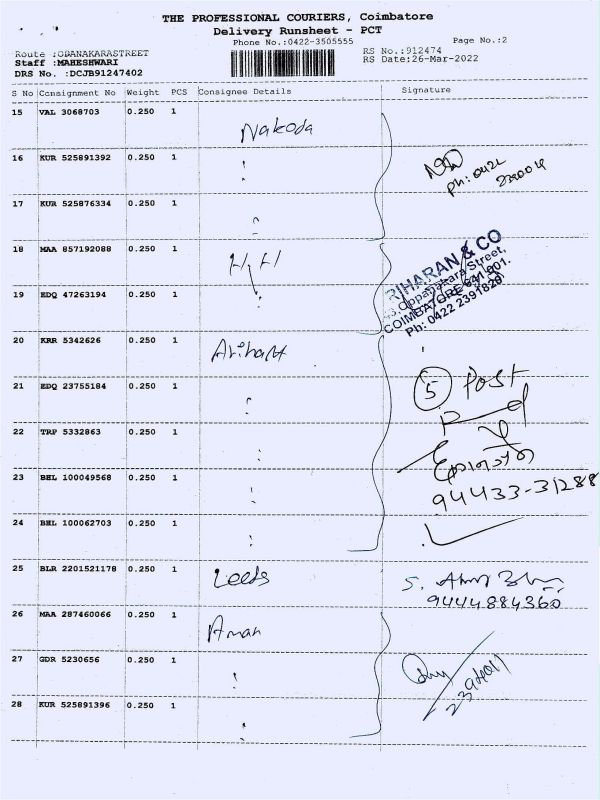 THE PROFESSIONAL COURIERS, Coimbatore
Delivery Runsheet - PCT
Phone No.:0422-3505555
Page No.:2
Route :OBANAKARASTREET
Staff :MAHESHWARI
DRS No. :DCJB91247402
RS No.:912474
RS Date:26-Mar-2022
S No Consignment No Weight PCS Consignee Details Signature
15 VAL 3068703 0.250 1 Nakoda
16 KUR 525891392 0.250 1 "
ph: 0422
17 KUR 525876334 0.250 1 "
18 MAA 857192088 0.250 1
RIHARAN & CO
Oppanakara Street,
COIMBATORE 641 001.
Ph: 0422 2391828
19 EDQ 47263194 0.250 1 "
20 KRR 5342626 0.250 1 Arihant
21 EDQ 23755184 0.250 1 "
5 Post
22 TRP 5332863 0.250 1 "
23 BHL 100049568 0.250 1 "
94433-31288
24 BHL 100062703 0.250 1 "
25 BLR 2201521178 0.250 1 Leeds
S.
9444884360
26 MAA 287460066 0.250 1 Aman
27 GDR 5230656 0.250 1 "
28 KUR 525891396 0.250 1 "